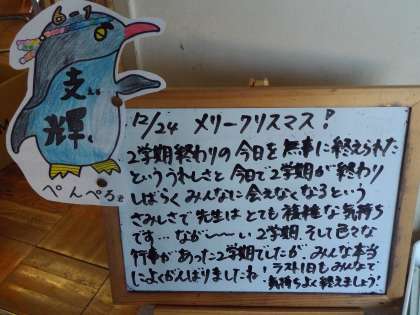 6-1
支え
輝く
ぺんぺる
12/24 メリークリスマス!
2学期終わりの今日を無事に終えられた
といううれしさと今日で2学期が終わり
しばらくみんなに会えなくなるという
さみしさで先生はとても複雑な気持ち
です…なが〜〜い2学期、そして色々な
行事があった2学期でしたが、みんな本当
によくがんばりましたね!ラスト1日もみんなで
気持ちよく終えましょう!